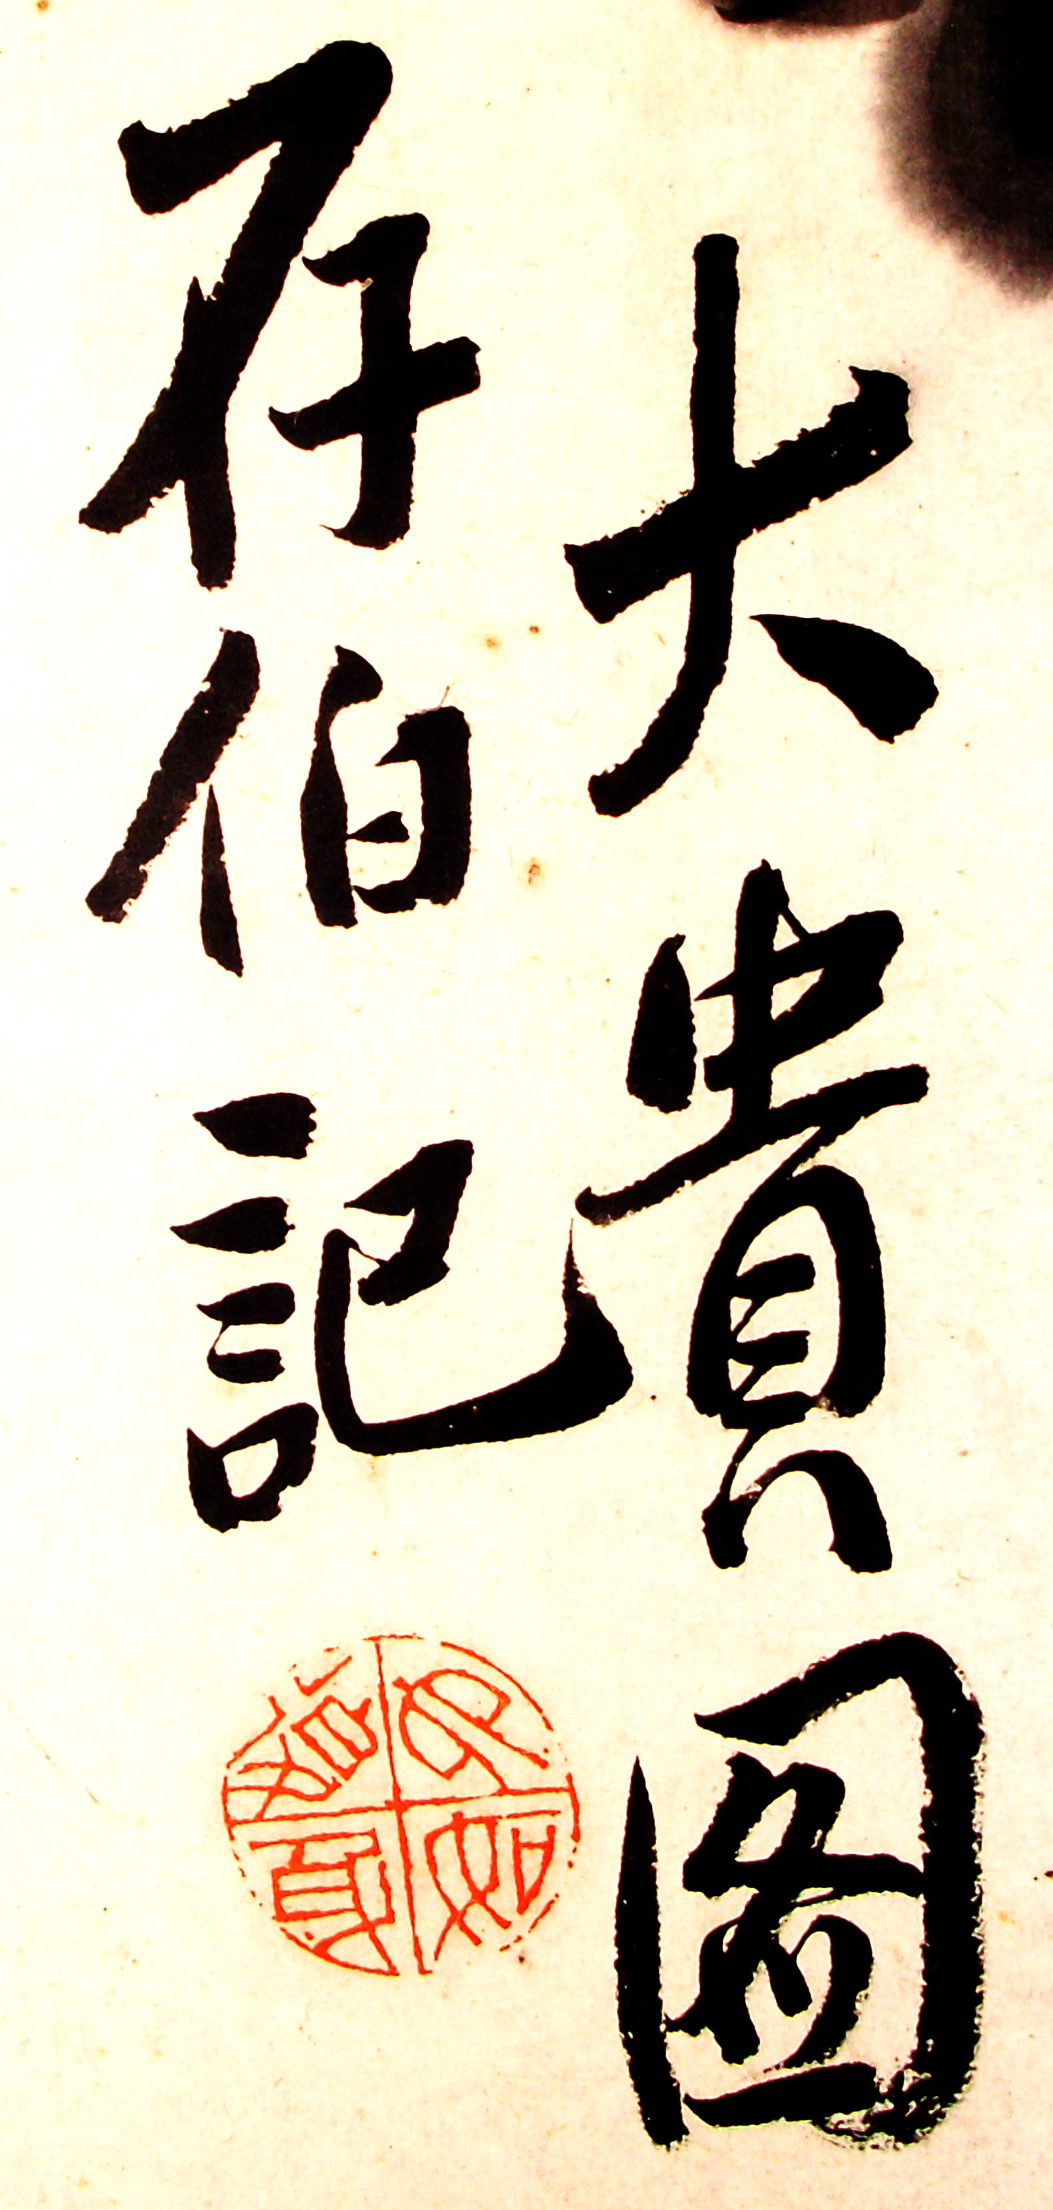 大貴圖
存伯記